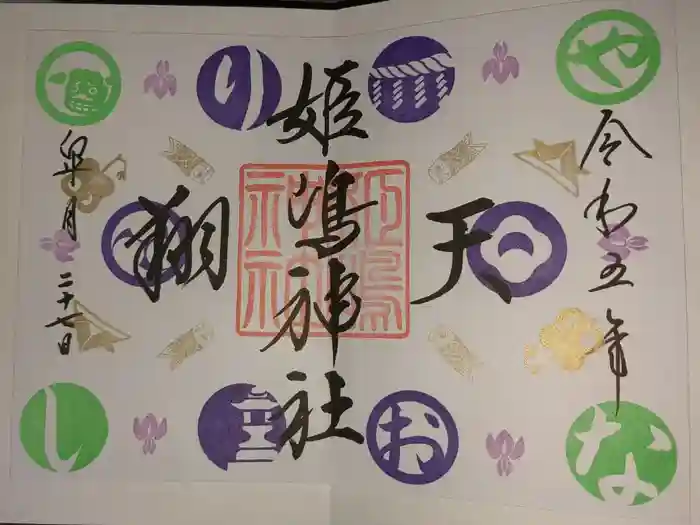 令和五年
天翔
姫嶋神社
皐月二十七日
や
り
な
お
し